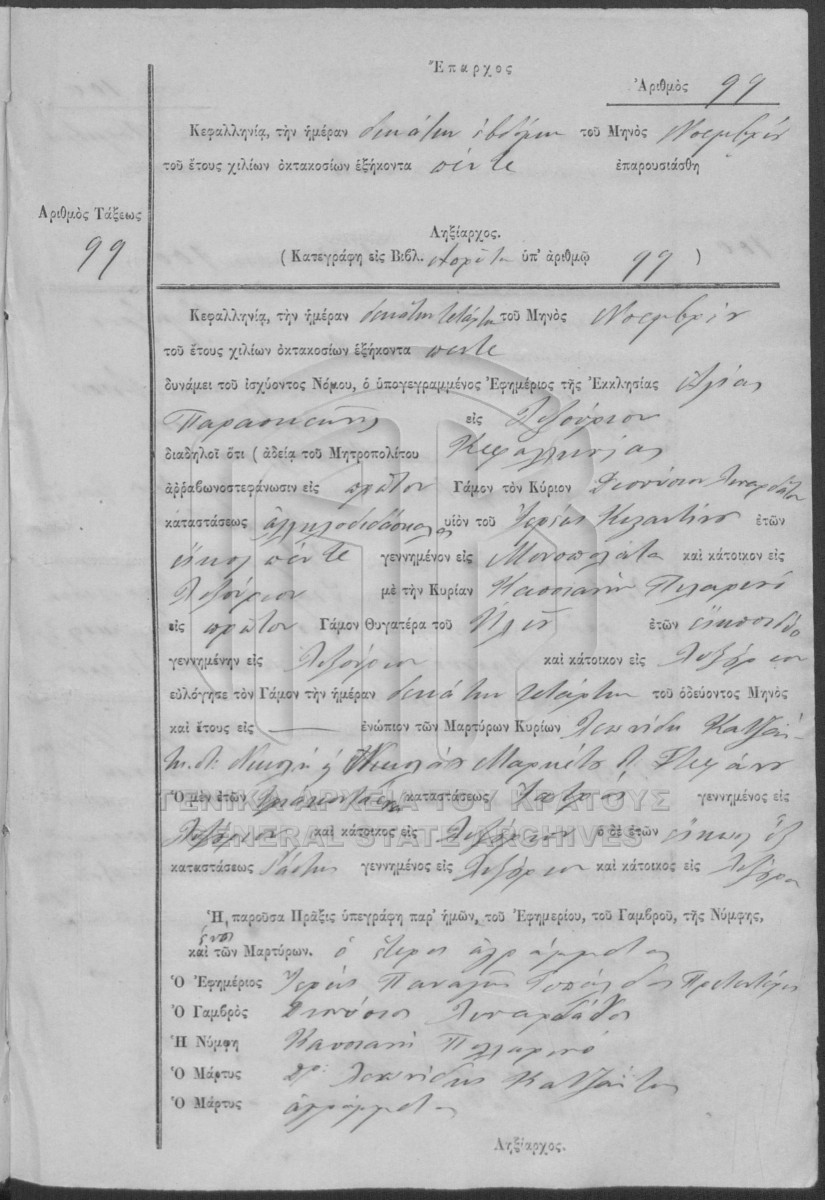 Ἔπαρχος
Ἀριθμὸς 99
Κεφαλληνίᾳ, τὴν ἡμέραν δεκάτην ἑβδόμην τοῦ Μηνὸς Νοεμβρίου
τοῦ ἔτους χιλίων ὀκτακοσίων ἑξήκοντα πέντε ἐπαρουσιάσθη
Ἀριθμὸς Τάξεως
99
Ληξίαρχος.
( Κατεγράφη εἰς Βιβλ. ὑπ' ἀριθμῷ 99 )
Κεφαλληνίᾳ, τὴν ἡμέραν δεκάτην τετάρτην τοῦ Μηνὸς Νοεμβρίου
τοῦ ἔτους χιλίων ὀκτακοσίων ἑξήκοντα πέντε
δυνάμει τοῦ ἰσχύοντος Νόμου, ὁ ὑπογεγραμμένος Ἐφημέριος τῆς Ἐκκλησίας Ἁγίας
Παρασκευῆς εἰς Ληξούριον
διαδηλοῖ ὅτι ( ἀδείᾳ τοῦ Μητροπολίτου Κεφαλληνίας
ἀῤῥαβωνοστεφάνωσιν εἰς πρῶτον Γάμον τὸν Κύριον Διονύσιον Λιναρδάτον
καταστάσεως ἀλληλοδιδάσκαλος υἱὸν τοῦ Ἱερέως ἐτῶν
εἴκοσι πέντε γεννημένον εἰς Μονοπολάτα καὶ κάτοικον εἰς
Ληξούριον μὲ τὴν Κυρίαν Κασσιανὴν Πυλαρινό
εἰς πρῶτον Γάμον Θυγατέρα τοῦ ἐτῶν εἰκοσιδύο
γεννημένην εἰς Ληξούριον καὶ κάτοικον εἰς Ληξούριον
εὐλόγησε τὸν Γάμον τὴν ἡμέραν δεκάτην τετάρτην τοῦ ὁδεύοντος Μηνὸς
καὶ ἔτους εἰς ἐνώπιον τῶν Μαρτύρων Κυρίων Λεωνίδα Κατζαΐ-
Νικολάου
Ὁ μὲν ἐτῶν καταστάσεως Ἰατρὸς γεννημένος εἰς
Ληξούριον καὶ κάτοικος εἰς Ληξούριον ὁ δὲ ἐτῶν εἴκοσι ἓξ
καταστάσεως Ῥάπτης γεννημένος εἰς Ληξούριον καὶ κάτοικος εἰς Ληξούριον
ΓΕΝΙΚΑ ΑΡΧΕΙΑ ΤΟΥ ΚΡΑΤΟΥΣ
GENERAL STATE ARCHIVES
Ἡ παροῦσα Πρᾶξις ὑπεγράφη παρ' ἡμῶν, τοῦ Ἐφημερίου, τοῦ Γαμβροῦ, τῆς Νύμφης,
καὶ τῶν Μαρτύρων. ὁ ἕτερος ἀγράμματος
Ὁ Ἐφημέριος Ἱερεὺς Παναγῆς
Ὁ Γαμβρὸς Διονύσιος Λιναρδάτος
Ἡ Νύμφη Κασσιανὴ Πυλαρινό
Ὁ Μάρτυς Λεωνίδας Κατζαΐτης
Ὁ Μάρτυς ἀγράμματος
Ληξίαρχος.